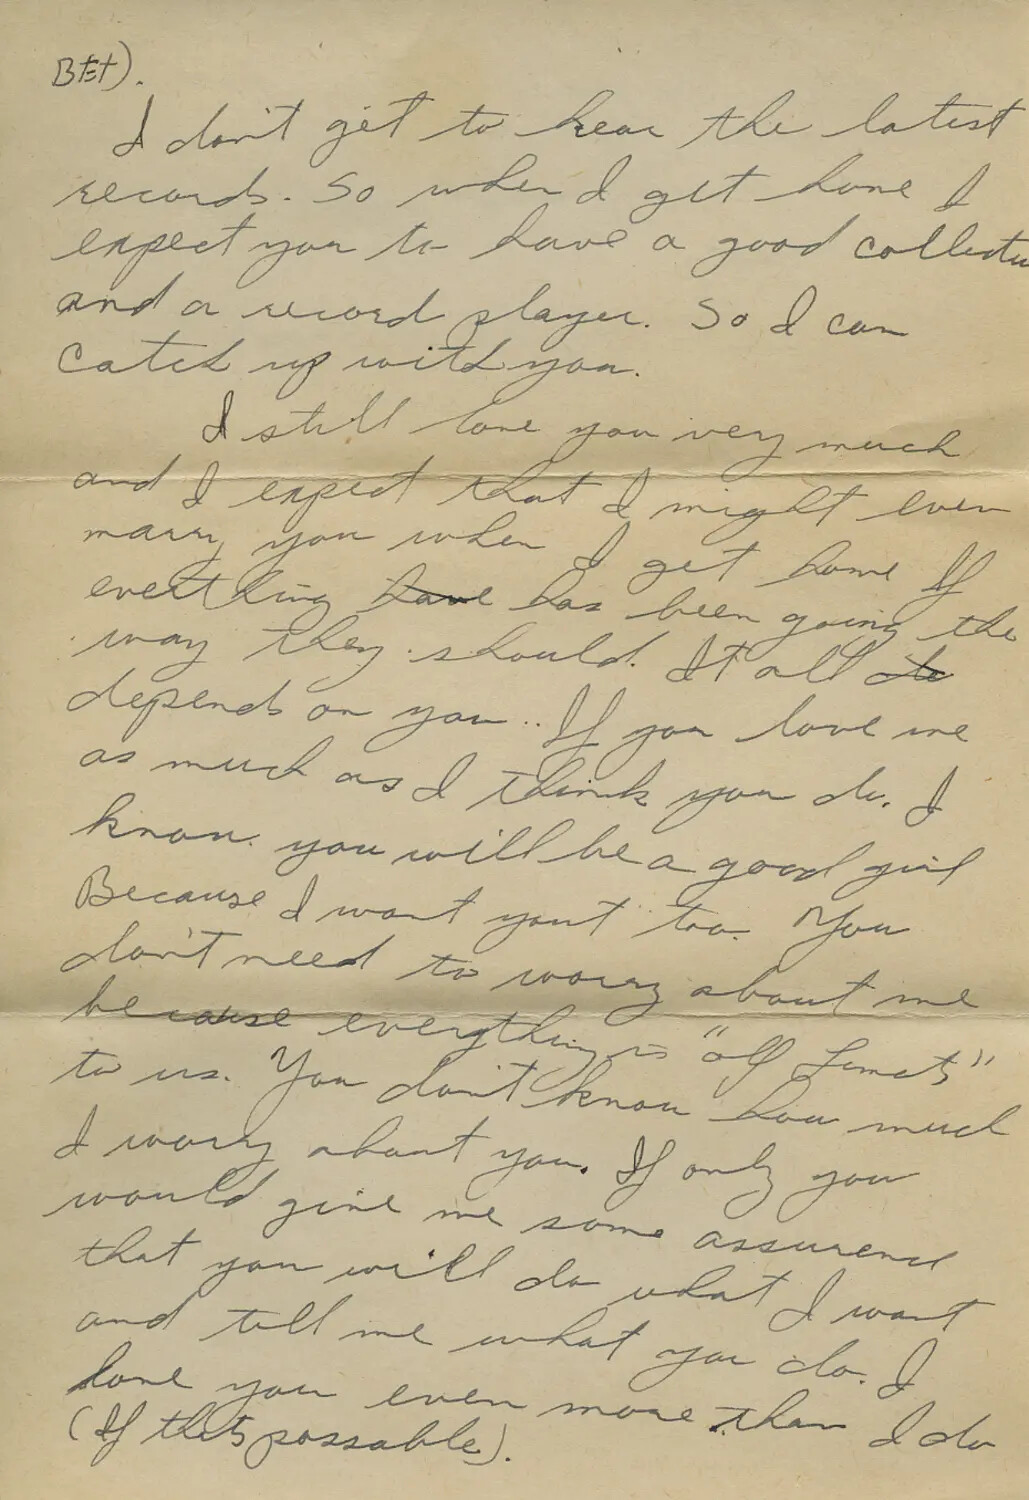 Bet).
I don't get to hear the latest
records. So when I get home I
expect you to have a good collectu
and a record player. So I can
Catch up with you.
I still love you very much
and I expect that I might even
marry you when I get home If
everthing have has been going the
way they should. It all de
depends on you.. If you love me
as much as I think you do. I
know you will be a good girl
Because I want you to. You
don't need to worry about me
because everything is "off Limets"
to us. You don't know how much
I worry about you. If only you
would give me some assurence
that you will do what I want
and tell me what you do. I
love you even more than I do
(If thets possable).